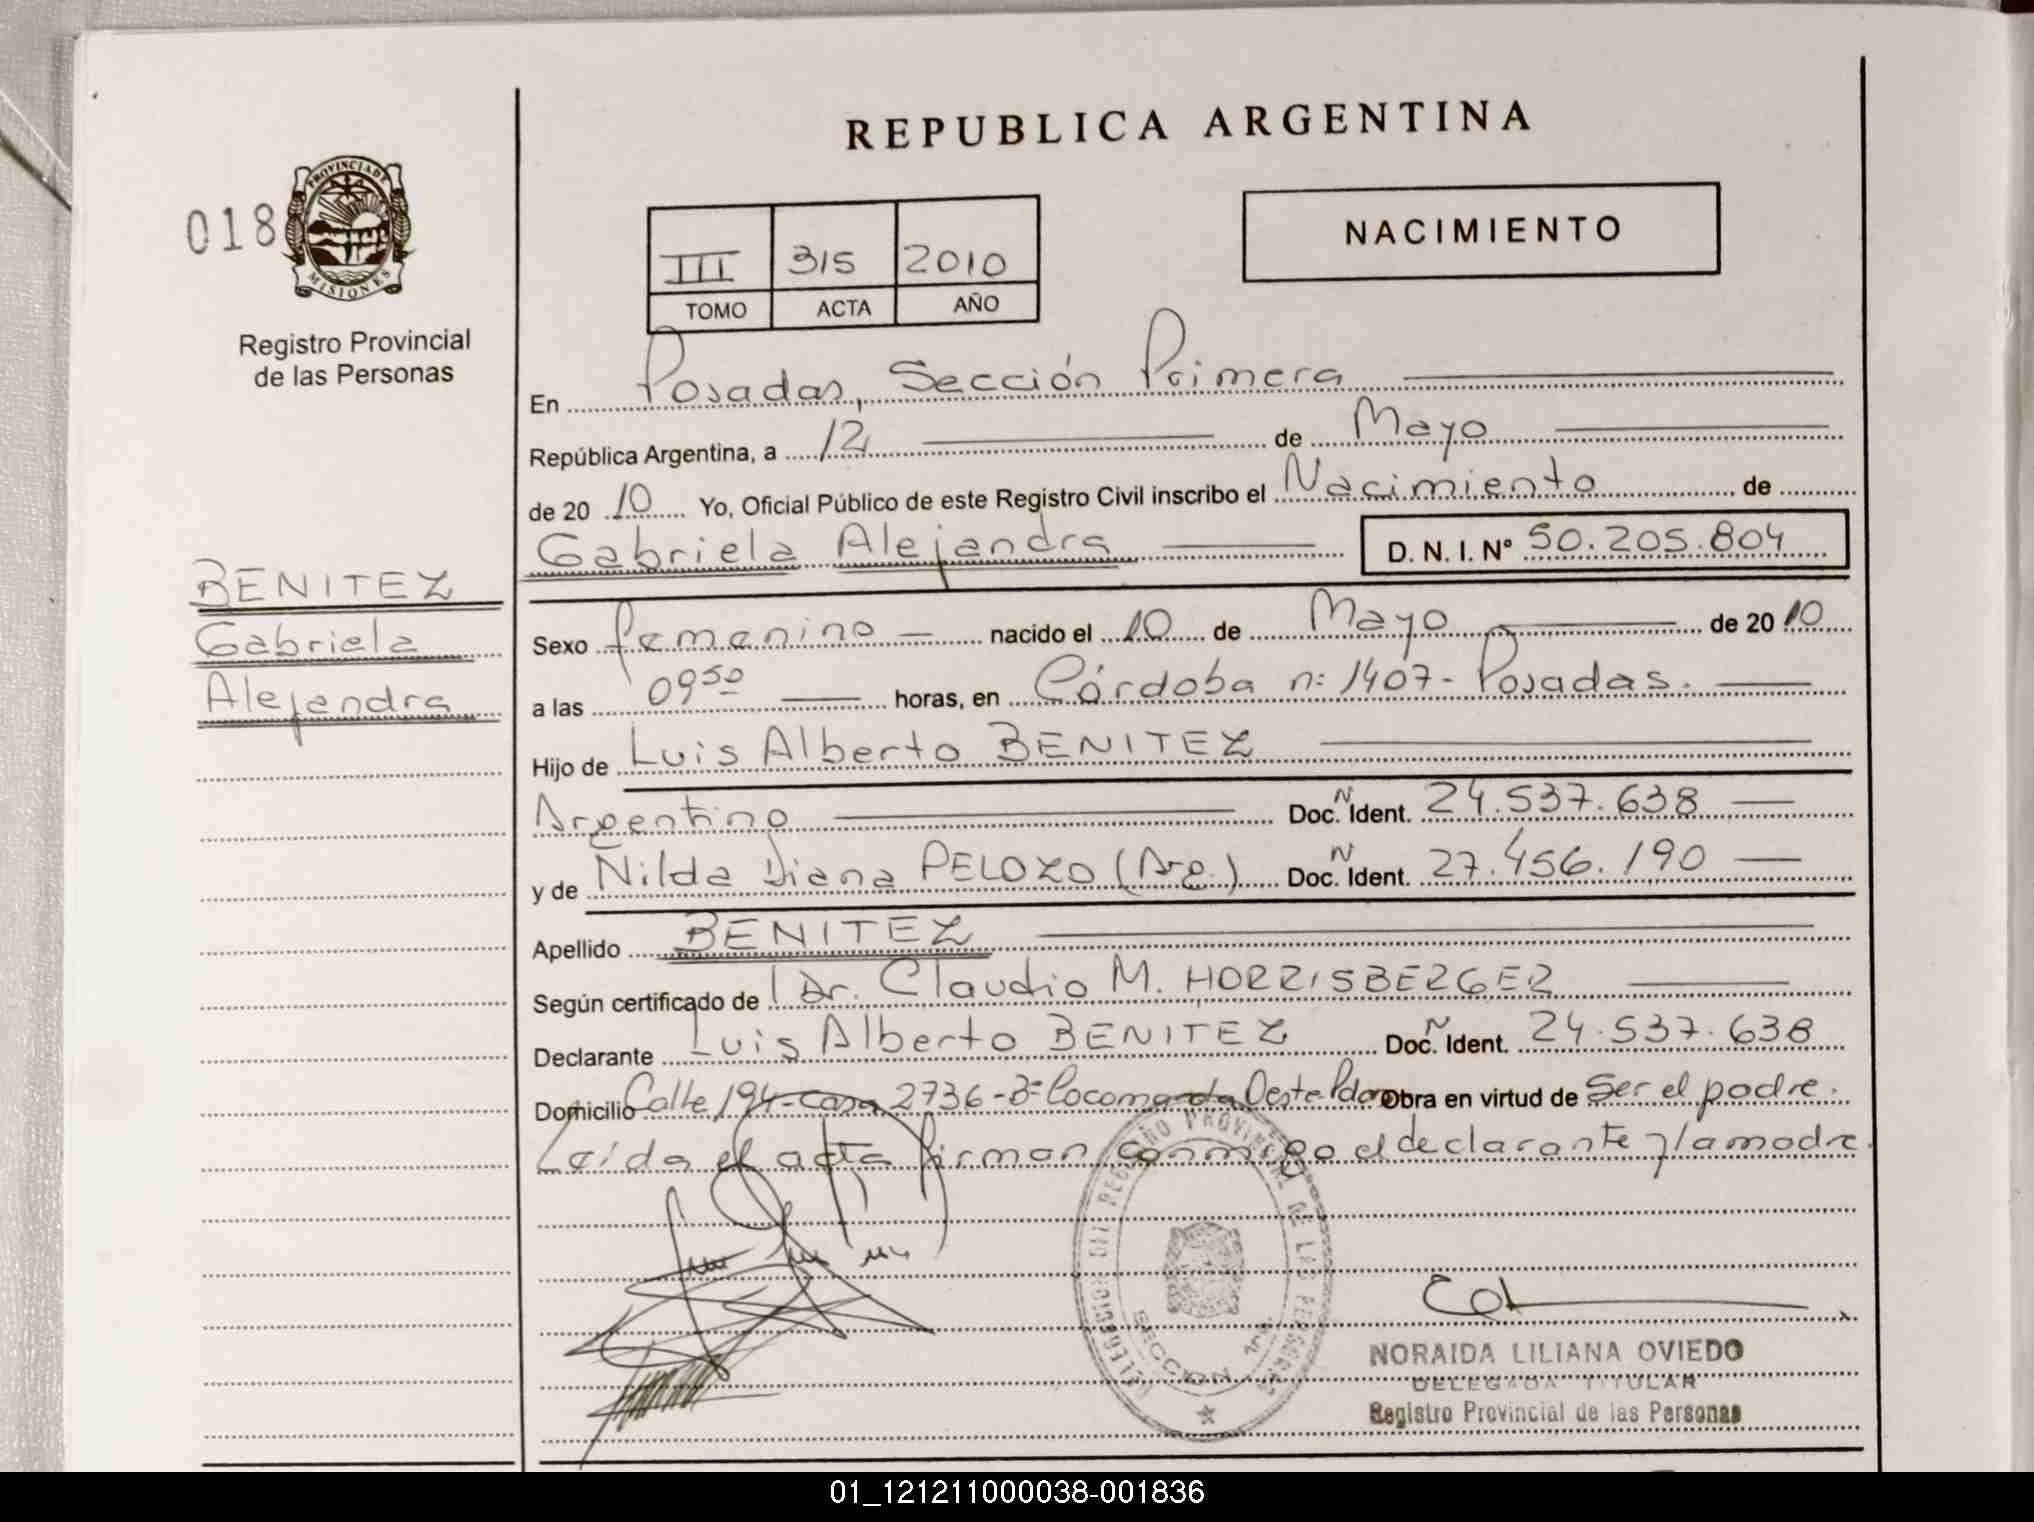 REPUBLICA ARGENTINA
018
PROVINCIA DE
MISIONES
Registro Provincial
de las Personas
III 315 2010
TOMO ACTA AÑO
NACIMIENTO
En Posadas, Sección Primera
República Argentina, a 12 de Mayo
de 20 10 Yo, Oficial Público de este Registro Civil inscribo el Nacimiento de
Gabriela Alejandra D. N. I. Nº 50.205.804
BENITEZ
Gabriela
Alejandra
Sexo femenino nacido el 10 de Mayo de 20 10
a las 09 50 horas, en Córdoba nº 1407 - Posadas.
Hijo de Luis Alberto BENITEZ
Argentino Doc. N Ident. 24.537.638
y de Nilda Diana PELOZO (Arg.) Doc. N Ident. 27.456.190
Apellido BENITEZ
Según certificado de Dr. Claudio M. HORRISBERGER
Declarante Luis Alberto BENITEZ Doc. N Ident. 24.537.638
Domicilio Calle 194 - Casa 2736 - Bº Rocamonda Oeste Pdas Obra en virtud de Ser el padre.
Leída el acta firman conmigo el declarante y la madre.
DELEGACION DEL REGISTRO PROVINCIAL DE LAS PERSONAS
SECCION 1RA.
NORAIDA LILIANA OVIEDO
DELEGADA TITULAR
Registro Provincial de las Personas
01_121211000038-001836